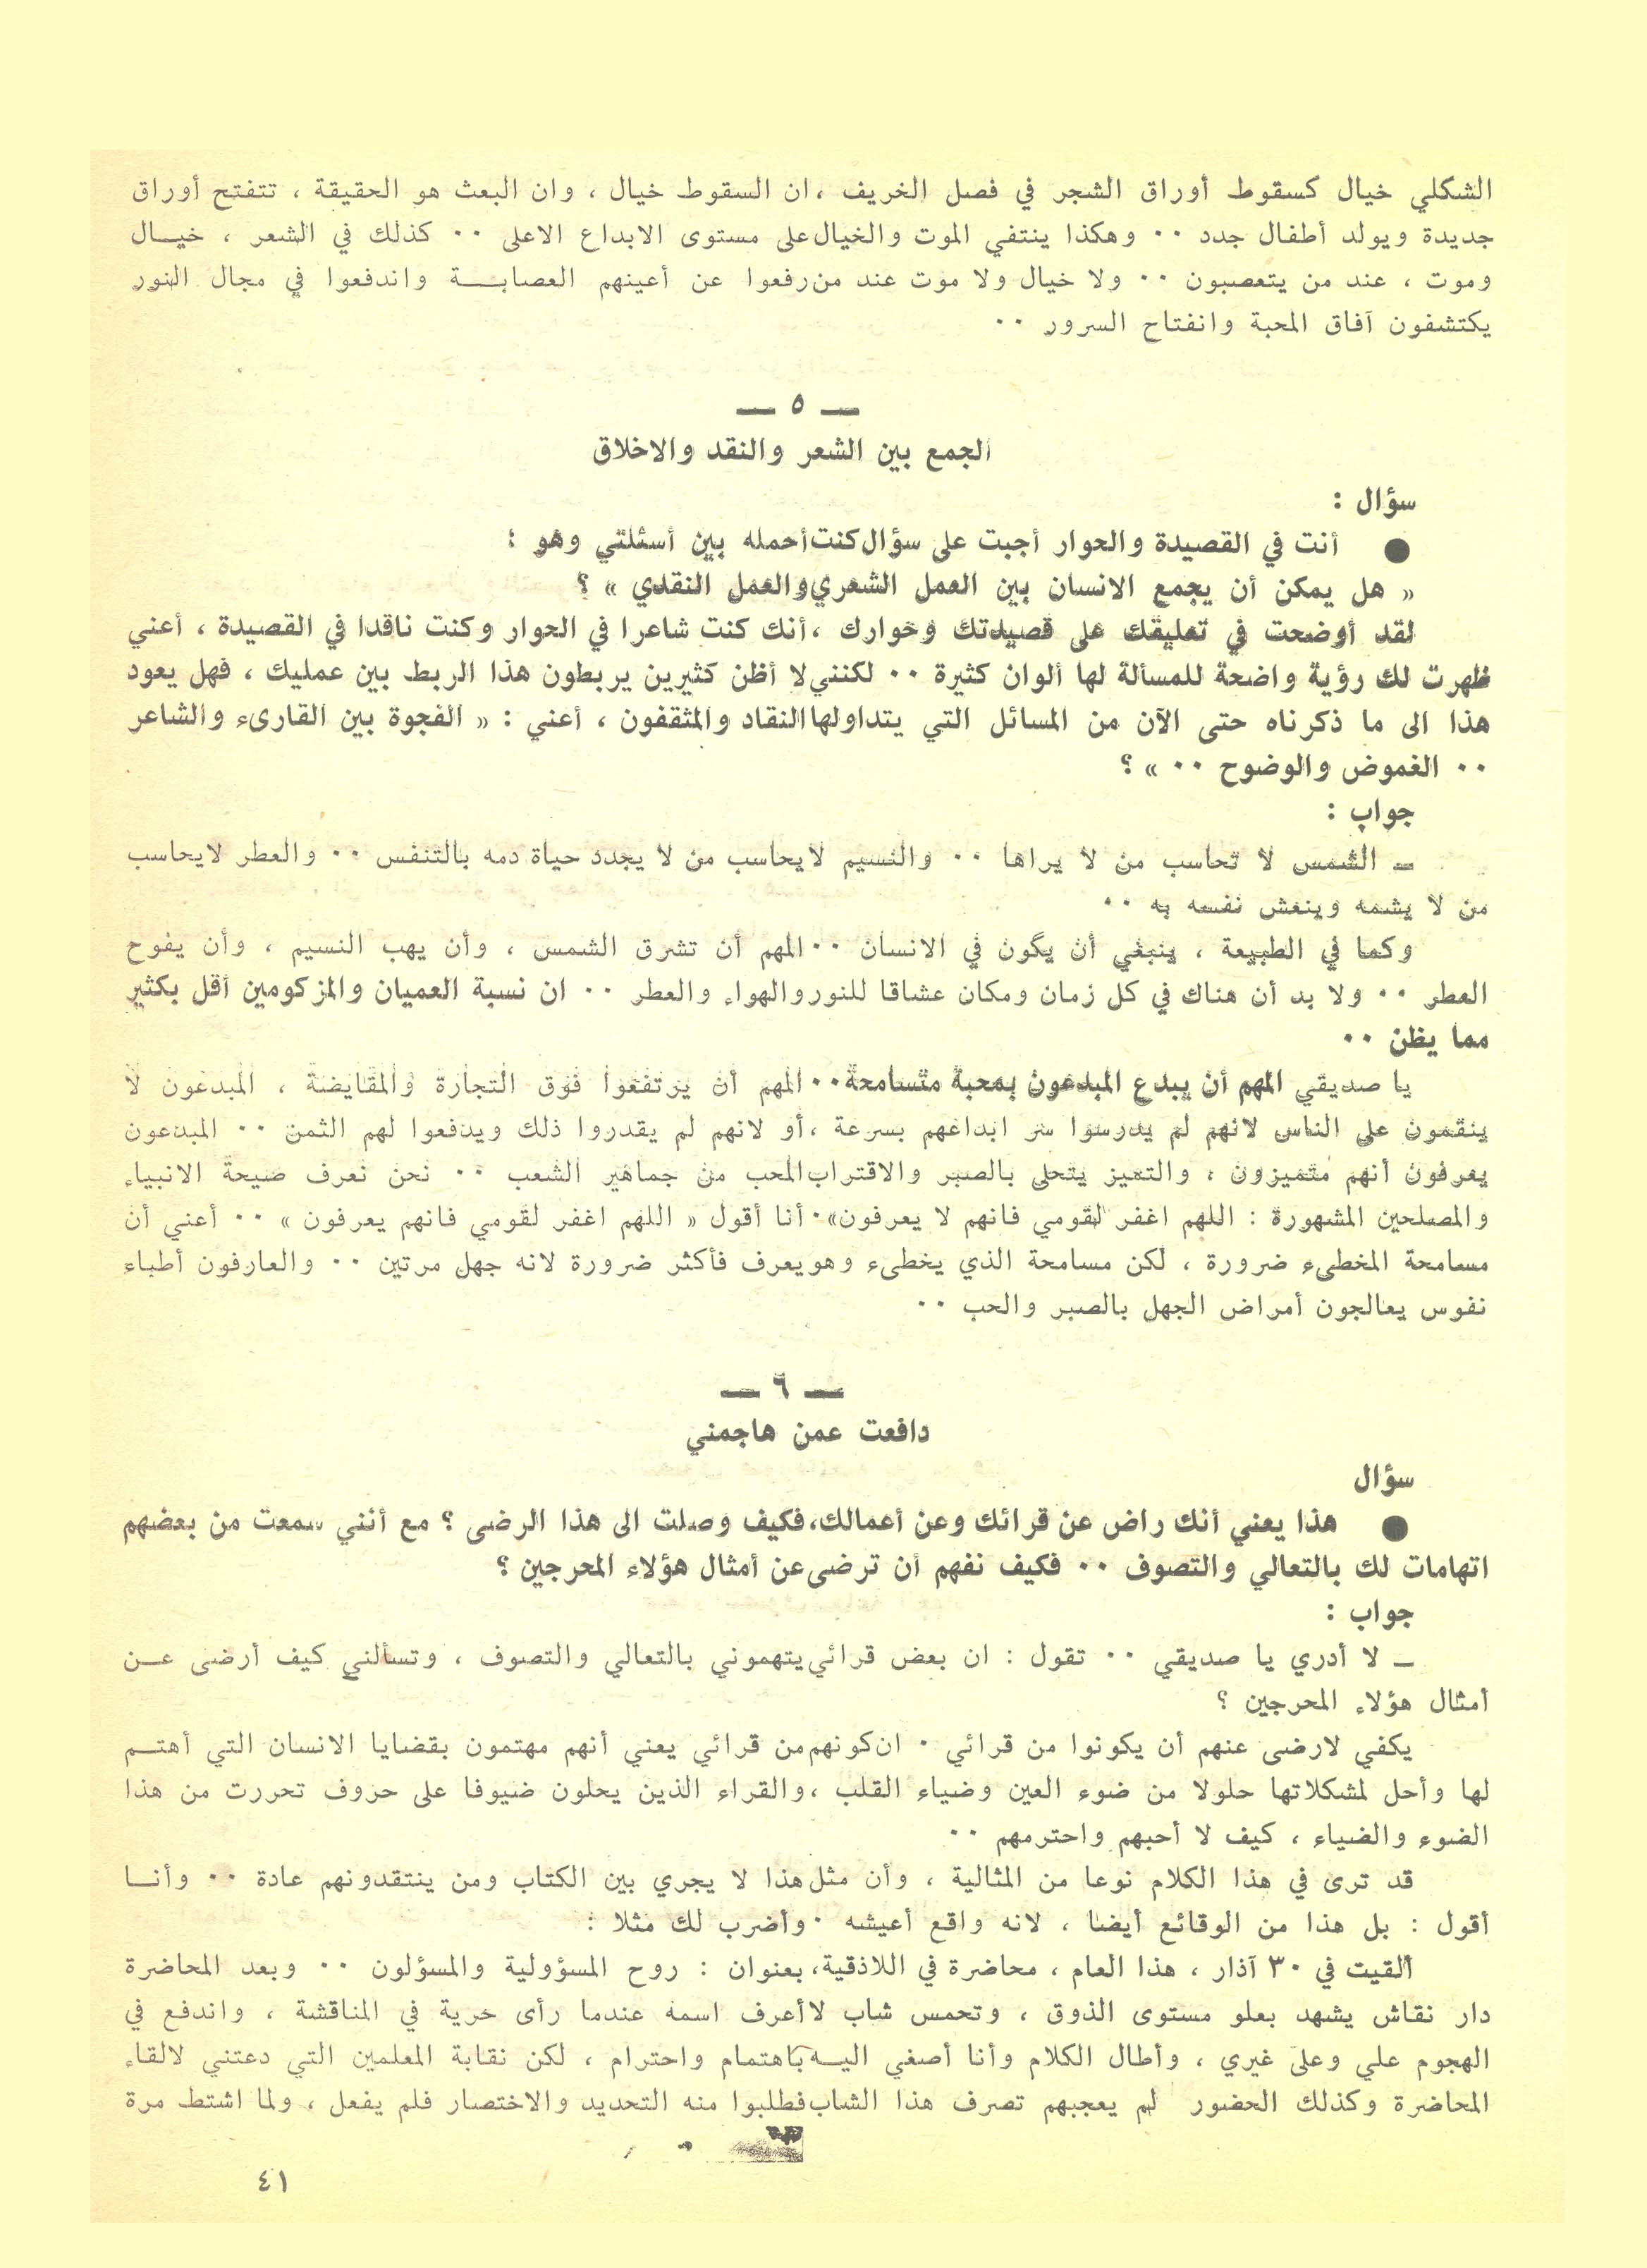 الشكلي خيال كسقوط أوراق الشجر في فصل الخريف ، ان السقوط خيال ، وان البعث هو الحقيقة ، تتفتح أوراق
جديدة ويولد أطفال جدد ٠٠ وهكذا ينتفي الموت والخيال على مستوى الابداع الاعلى ٠٠ كذلك في الشعر ، خيــال
وموت ، عند من يتعصبون ٠٠ ولا خيال ولا موت عند من رفعوا عن أعينهم العصابــة واندفعوا في مجال النور
يكتشفون آفاق المحبة وانفتاح السرور ٠٠
— ٥ —
الجمع بين الشعر والنقد والاخلاق
سؤال :
● أنت في القصيدة والحوار أجبت على سؤال كنت أحمله بين أسئلتي وهو :
« هل يمكن أن يجمع الانسان بين العمل الشعري والعمل النقدي » ؟
لقد أوضحت في تعليقك على قصيدتك وحوارك ، أنك كنت شاعرا في الحوار وكنت ناقدا في القصيدة ، أعني
ظهرت لك رؤية واضحة للمسألة لها ألوان كثيرة ٠٠ لكنني لا أظن كثيرين يربطون هذا الربط بين عمليك ، فهل يعود
هذا الى ما ذكرناه حتى الآن من المسائل التي يتداولها النقاد والمثقفون ، أعني : « الفجوة بين القارىء والشاعر
٠٠ الغموض والوضوح ٠٠ » ؟
جواب :
— الشمس لا تحاسب من لا يراها ٠٠ والنسيم لا يحاسب من لا يجدد حياة دمه بالتنفس ٠٠ والعطر لا يحاسب
من لا يشمه وينعش نفسه به ٠٠
وكما في الطبيعة ، ينبغي أن يكون في الانسان ٠٠ المهم أن تشرق الشمس ، وأن يهب النسيم ، وأن يفوح
العطر ٠٠ ولا بد أن هناك في كل زمان ومكان عشاقا للنور والهواء والعطر ٠٠ ان نسبة العميان والمزكومين أقل بكثير
مما يظن ٠٠
يا صديقي المهم أن يبدع المبدعون بمحبة متسامحة ٠٠ المهم أن يرتفعوا فوق التجارة والمقايضة ، المبدعون لا
ينقمون على الناس لانهم لم يدرسوا سر ابداعهم بسرعة ، أو لانهم لم يقدروا ذلك ويدفعوا لهم الثمن ٠٠ المبدعون
يعرفون أنهم متميزون ، والتميز يتحلى بالصبر والاقتراب المحب من جماهير الشعب ٠٠ نحن نعرف صيحة الانبياء
والمصلحين المشهورة : اللهم اغفر لقومي فانهم لا يعرفون» ٠ أنا أقول « اللهم اغفر لقومي فانهم يعرفون » ٠٠ أعني أن
مسامحة المخطىء ضرورة ، لكن مسامحة الذي يخطىء وهو يعرف فأكثر ضرورة لانه جهل مرتين ٠٠ والعارفون أطباء
نفوس يعالجون أمراض الجهل بالصبر والحب ٠٠
— ٦ —
دافعت عمن هاجمني
سؤال
● هذا يعني أنك راض عن قرائك وعن أعمالك، فكيف وصلت الى هذا الرضى ؟ مع أنني سمعت من بعضهم
اتهامات لك بالتعالي والتصوف ٠٠ فكيف نفهم أن ترضى عن أمثال هؤلاء المحرجين ؟
جواب :
— لا أدري يا صديقي ٠٠ تقول : ان بعض قرائي يتهموني بالتعالي والتصوف ، وتسألني كيف أرضى عــن
أمثال هؤلاء المحرجين ؟
يكفي لارضى عنهم أن يكونوا من قرائي ٠ ان كونهم من قرائي يعني أنهم مهتمون بقضايا الانسان التي أهتــم
لها وأحل لمشكلاتها حلولا من ضوء العين وضياء القلب ، والقراء الذين يحلون ضيوفا على حروف تحررت من هذا
الضوء والضياء ، كيف لا أحبهم واحترمهم ٠٠
قد ترى في هذا الكلام نوعا من المثالية ، وأن مثل هذا لا يجري بين الكتاب ومن ينتقدونهم عادة ٠٠ وأنــا
أقول : بل هذا من الوقائع أيضا ، لانه واقع أعيشه ٠ وأضرب لك مثلا :
ألقيت في ٣٠ آذار ، هذا العام ، محاضرة في اللاذقية، بعنوان : روح المسؤولية والمسؤلون ٠٠ وبعد المحاضرة
دار نقاش يشهد بعلو مستوى الذوق ، وتحمس شاب لا أعرف اسمه عندما رأى حرية في المناقشة ، واندفع في
الهجوم علي وعلى غيري ، وأطال الكلام وأنا أصغي اليــه باهتمام واحترام ، لكن نقابة المعلمين التي دعتني لالقاء
المحاضرة وكذلك الحضور لم يعجبهم تصرف هذا الشاب فطلبوا منه التحديد والاختصار فلم يفعل ، ولما اشتط مرة
٤١